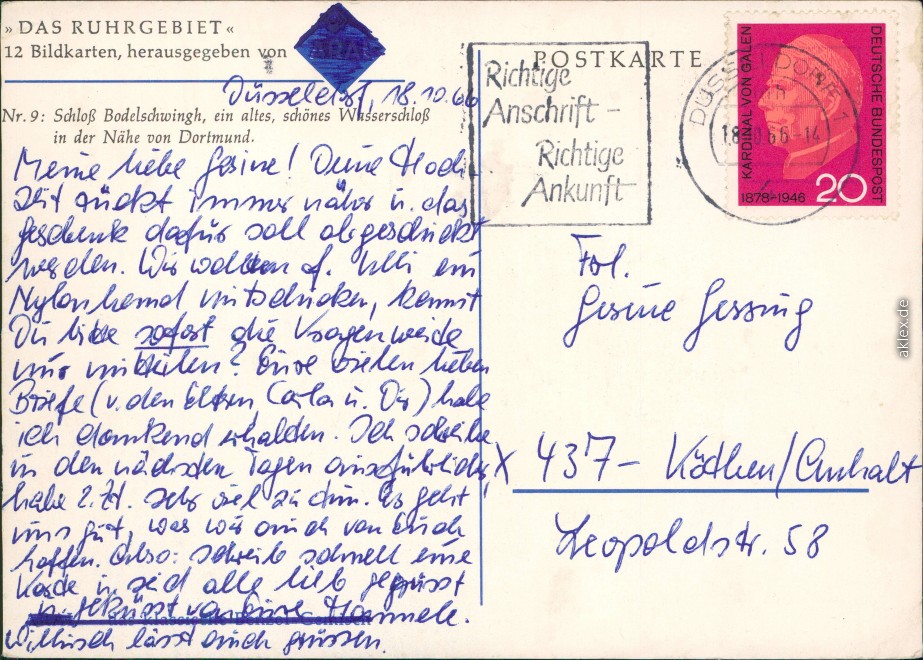 »DAS RUHRGEBIET«
12 Bildkarten, herausgegeben von ARAL
Nr. 9: Schloß Bodelschwingh, ein altes, schönes Wasserschloß
in der Nähe von Dortmund.
Düsseldorf, 18.10.66
Meine liebe Gesine! Deine Hoch-
zeit rückt immer näher u. das
Geschenk dafür soll abgeschickt
werden. Wir wollten f. Ulli ein
Nylonhemd mitschicken, kannst
Du bitte sofort die Kragenweite
mir mitteilen? Eure vielen lieben
Briefe (v. den Eltern Carla u. Dir) habe
ich dankend erhalten. Ich schreibe
in den nächsten Tagen ausführlicher,
habe z.Zt. sehr viel zu tun. Es geht
uns gut, was wir auch von Euch
hoffen. Also: schreib schnell eine
Karte u. seid alle lieb gegrüsst
u. geküsst von Eure Hannele.
lässt auch grüssen.
POSTKARTE
Richtige
Anschrift -
Richtige
Ankunft
DÜSSELDORF 1
18.10.66-14
KARDINAL VON GALEN
1878-1946
DEUTSCHE BUNDESPOST
20
Frl.
Gesine Gessing
X 437 - Köthen/Anhalt
Leopoldstr. 58
aklex.de